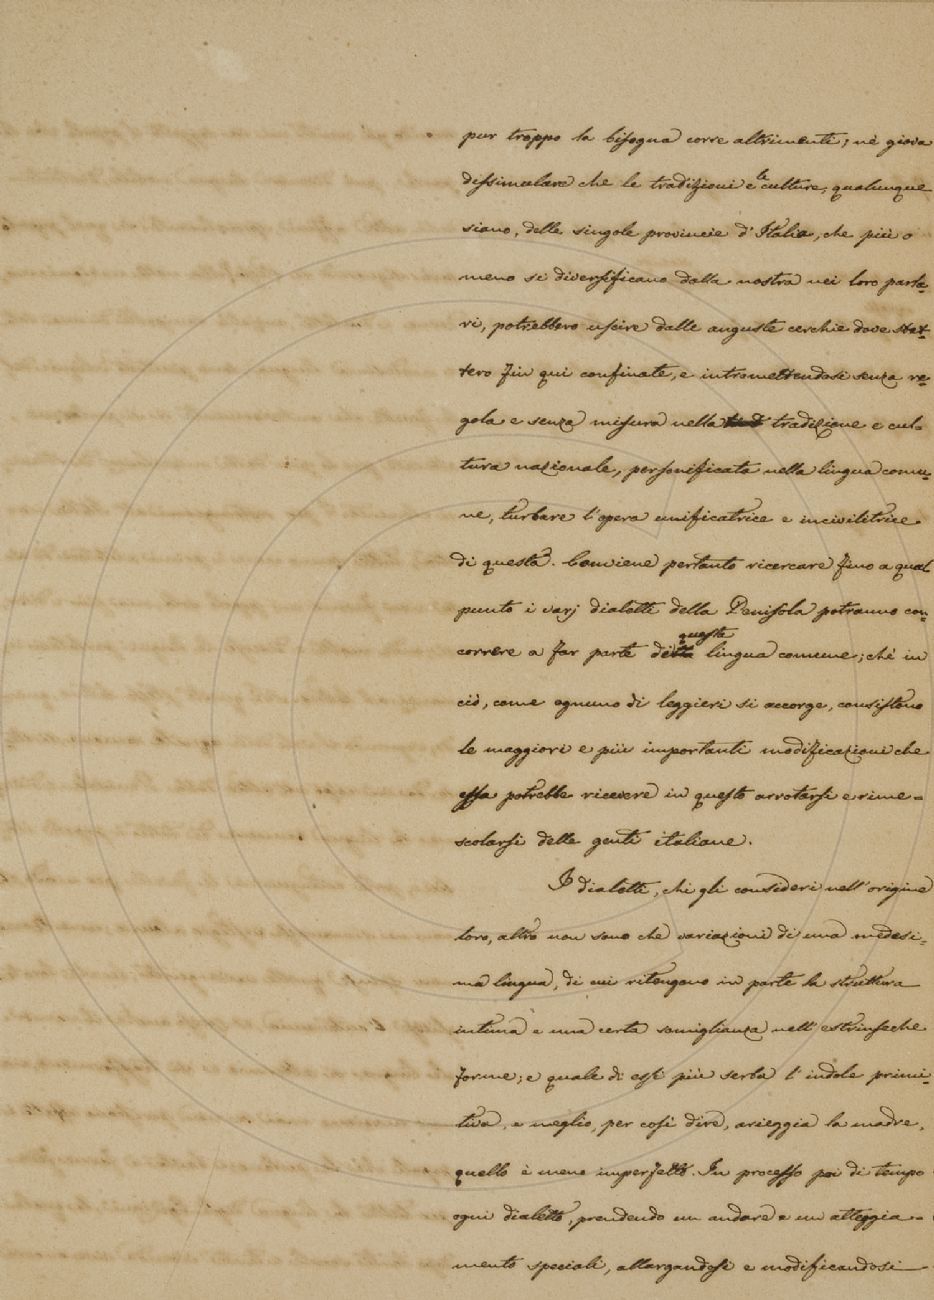 pur troppo la bisogna corre altrimenti; nè giova
dissimulare che le tradizioni e le culture, qualunque
siano, delle singole provincie d'Italia, che più o
meno si diversificano dalla nostra nei loro parla-
ri, potrebbero uscire dalle anguste cerchie dove stet-
tero fin qui confinate, e intromettendosi senza re-
gola e senza misura nella tradizione e cul-
tura nazionale, personificata nella lingua comu-
ne, turbare l'opera unificatrice e incivilitrice
di questa. Conviene pertanto ricercare fino a qual
punto i varj dialetti della Penisola potranno con-
correre a far parte di questa lingua comune; chè in
ciò, come ognuno di leggieri si accorge, consistono
le maggiori e più importanti modificazioni che
essa potrebbe ricevere in questo arrotarsi e rime-
scolarsi delle genti italiane.
I dialetti, chi gli consideri nell'origine
loro, altro non sono che variazioni di una medesi-
ma lingua, di cui ritengono in parte la struttura
intima e una certa somiglianza nell'estrinseche
forme; e quale di essi più serba l'indole primi-
tiva, e meglio, per così dire, arieggia la madre,
quello è meno imperfetto. In processo poi di tempo
ogni dialetto, prendendo un andare e un atteggia-
mento speciali, allargandosi e modificandosi